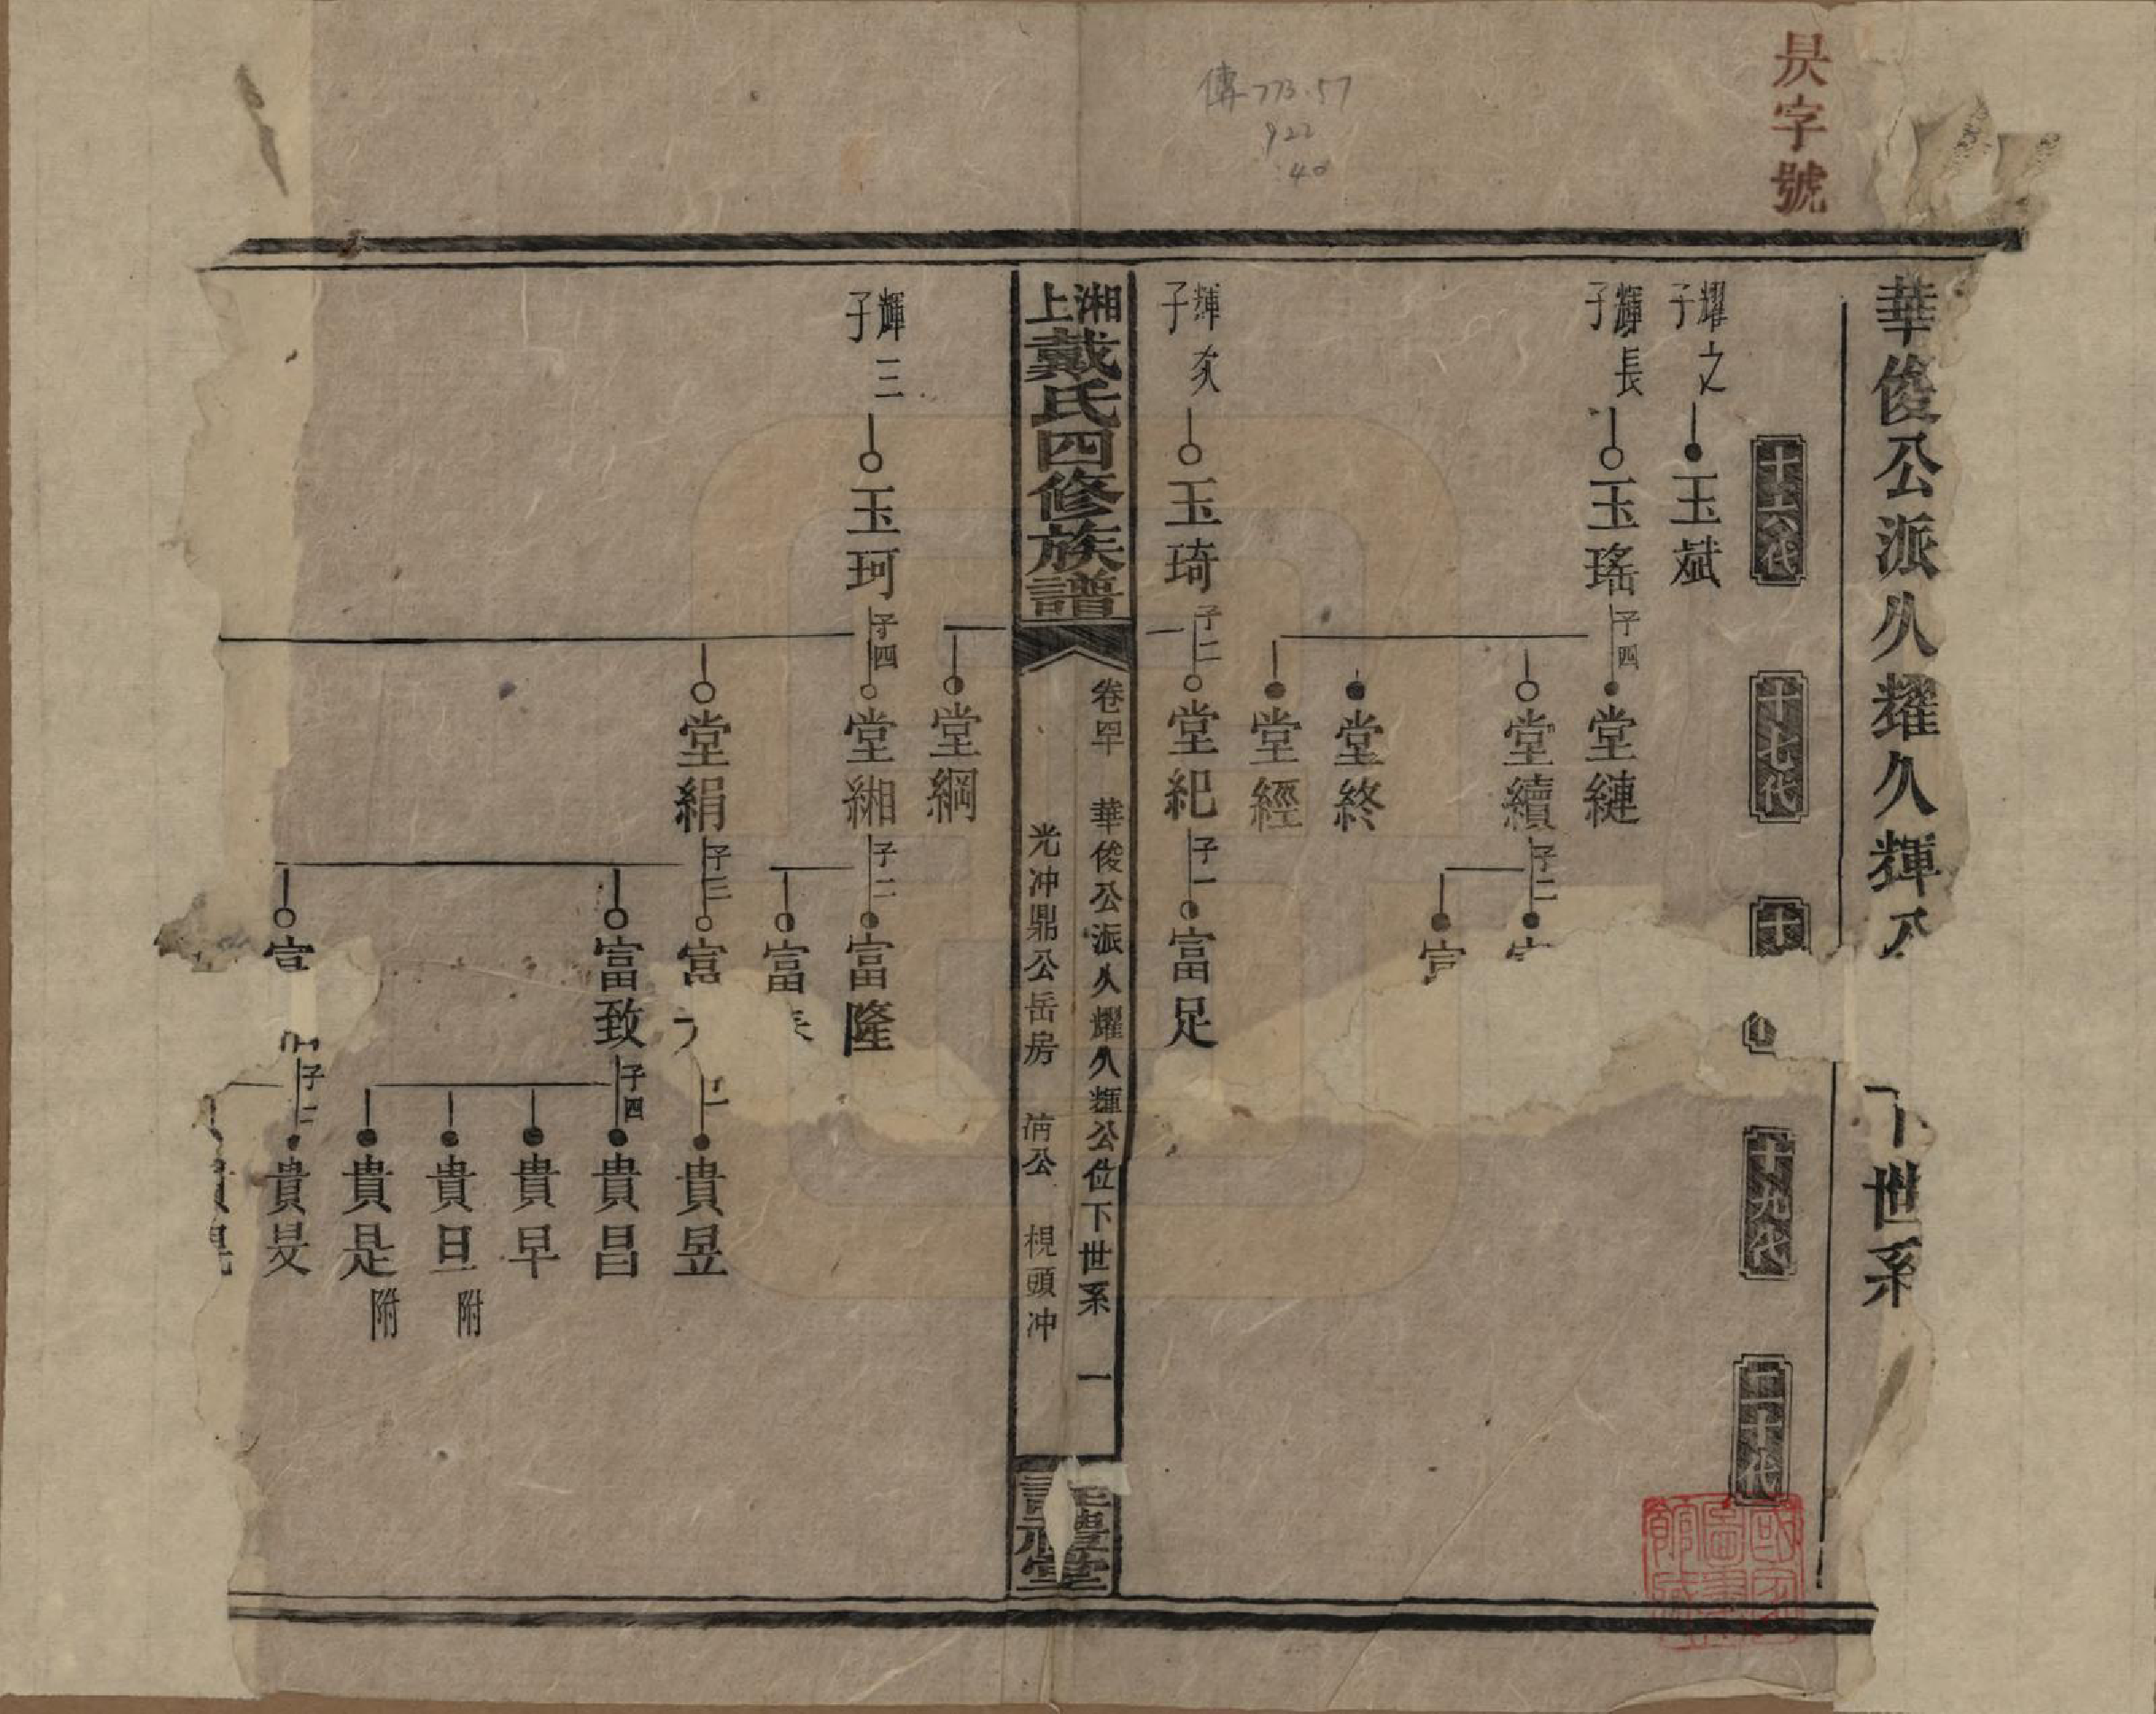 昃字號
傳773.57
922
:40
華俊公派久耀久輝公
下世系
十六代
十七代
十
十九代
二十代
耀之子
玉斌
輝長子
玉瑤
子四
堂縺
堂續
子二
堂終
堂經
輝次子
玉琦
子二
堂紀
子一
富足
湘上戴氏四修族譜
卷四十
華俊公派久耀久輝公位下世系
一
光冲鼎公岳房
清公
梘頭冲
堂
堂綱
輝三子
玉珂
子四
堂緗
子二
富隆
富
堂絹
子三
富
貴昱
富致
子四
貴昌
貴早
貴旦
附
貴是
附
子二
貴旻